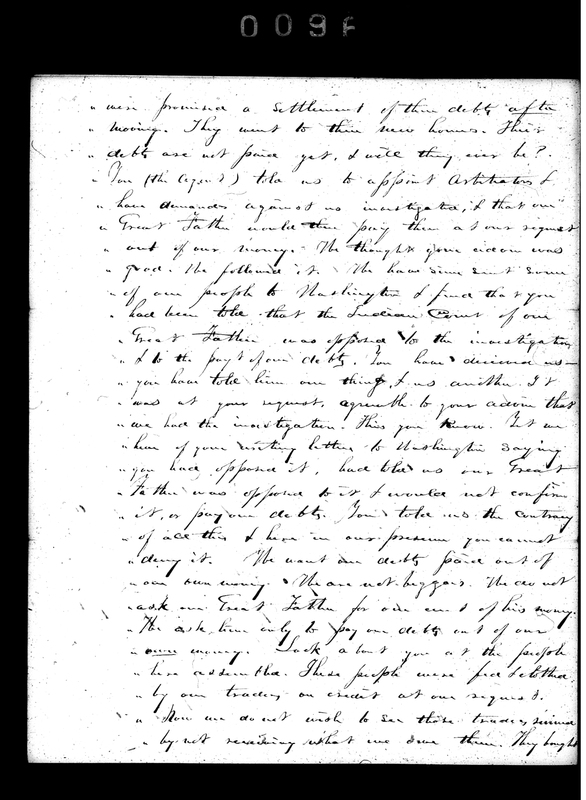 0096
" were promised a settlement of their debts after
" moving. They went to their new homes. Their
" debts are not paid yet, & will they ever be?
" You (the agent) told us to appoint arbitrators &
" have demands against us investigated, & that our
" Great Father would then pay them at our request
" out of our money. We thought your advice was
" good. We followed it. We have since sent some
" of our people to Washington & find that you
" had been told that the Indian Court of our
" Great Father was opposed to the investigation
" & to the payt of our debts. You have deceived us —
" you have told him one thing & us another. It
" was at your request, agreeable to your advice that
" we had the investigation. This you know. Yet we
" hear of your writing letters to Washington saying
" you had opposed it, had told us our Great
" Father was opposed to it & would not confirm
" it, or pay our debts. You told us the contrary
" of all this & here in our presence you cannot
" deny it. We want our debts paid out of
" our own money. We are not beggars. We do not
" ask our Great Father for one cent of his money.
" We ask him only to pay our debts out of our
" own money. Look about you at the people
" here assembled. These people were fed & clothed
" by our traders on credit at our request.
" Now we do not wish to see those traders ruined
" by not receiving what we owe them. They bought